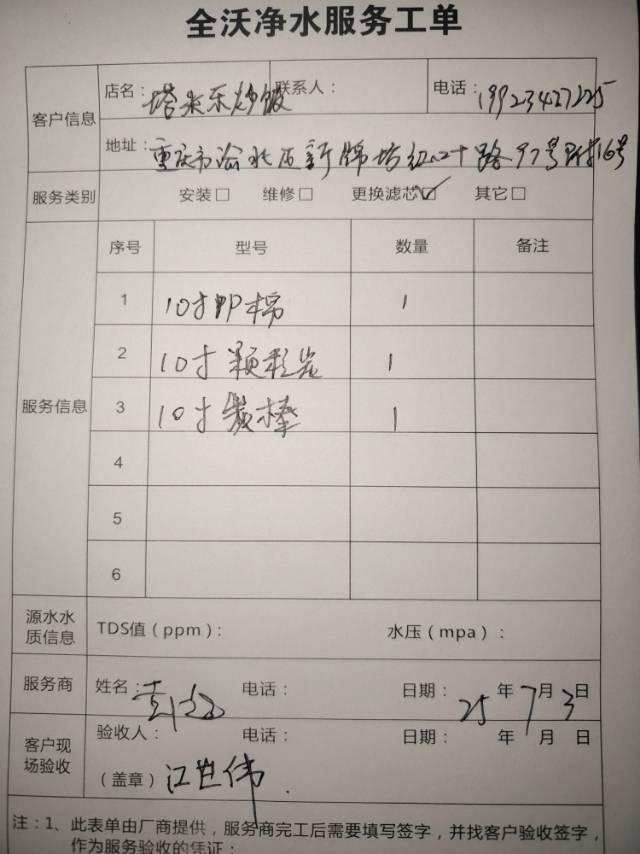 全沃净水服务工单
客户信息 店名：塔米乐炒饭 联系人： 电话：19923427225
地址：重庆市渝北区新牌坊红心十路97号附16号
服务类别 安装□ 维修□ 更换滤芯☑ 其它□
服务信息 序号 型号 数量 备注
1 10寸PP棉 1
2 10寸颗粒炭 1
3 10寸炭棒 1
4
5
6
源水水质信息 TDS值（ppm）： 水压（mpa）：
服务商 姓名： 电话： 日期：25年7月3日
客户现场验收 验收人： 电话： 日期： 年 月 日
（盖章）江世伟
注：1、此表单由厂商提供，服务商完工后需要填写签字，并找客户验收签字，
作为服务验收的凭证；